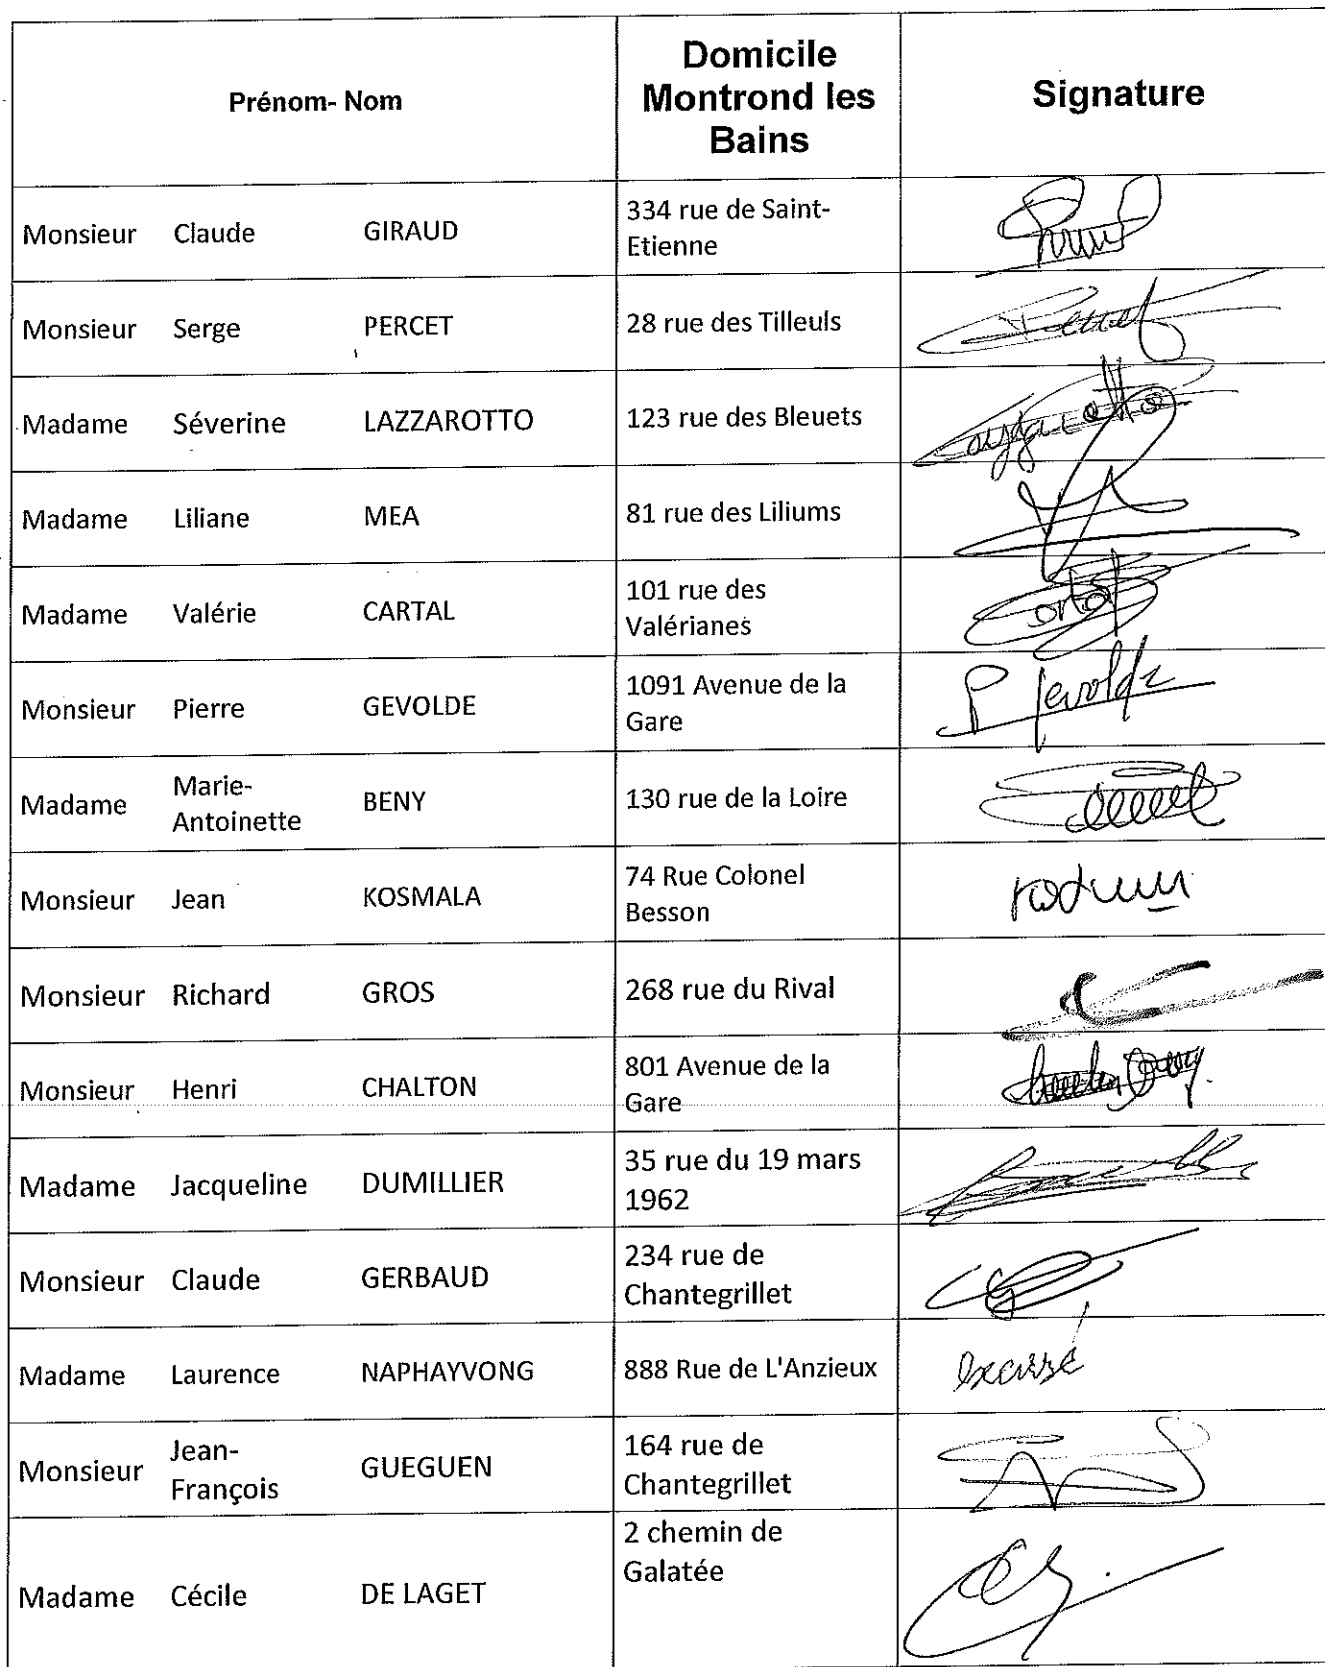 Prénom- Nom
Domicile
Montrond les
Bains
Signature
Monsieur Claude GIRAUD
334 rue de Saint-
Etienne
Monsieur Serge PERCET 28 rue des Tilleuls
Madame Séverine LAZZAROTTO 123 rue des Bleuets
Madame Liliane MEA 81 rue des Liliums
Madame Valérie CARTAL
101 rue des
Valérianes
Monsieur Pierre GEVOLDE
1091 Avenue de la
Gare
P Gevolde
Madame
Marie-
Antoinette
BENY 130 rue de la Loire
Monsieur Jean KOSMALA
74 Rue Colonel
Besson
Monsieur Richard GROS 268 rue du Rival
Monsieur Henri CHALTON
801 Avenue de la
Gare
Madame Jacqueline DUMILLIER
35 rue du 19 mars
1962
Monsieur Claude GERBAUD
234 rue de
Chantegrillet
Madame Laurence NAPHAYVONG 888 Rue de L'Anzieux excusé
Monsieur
Jean-
François
GUEGUEN
164 rue de
Chantegrillet
Madame Cécile DE LAGET
2 chemin de
Galatée